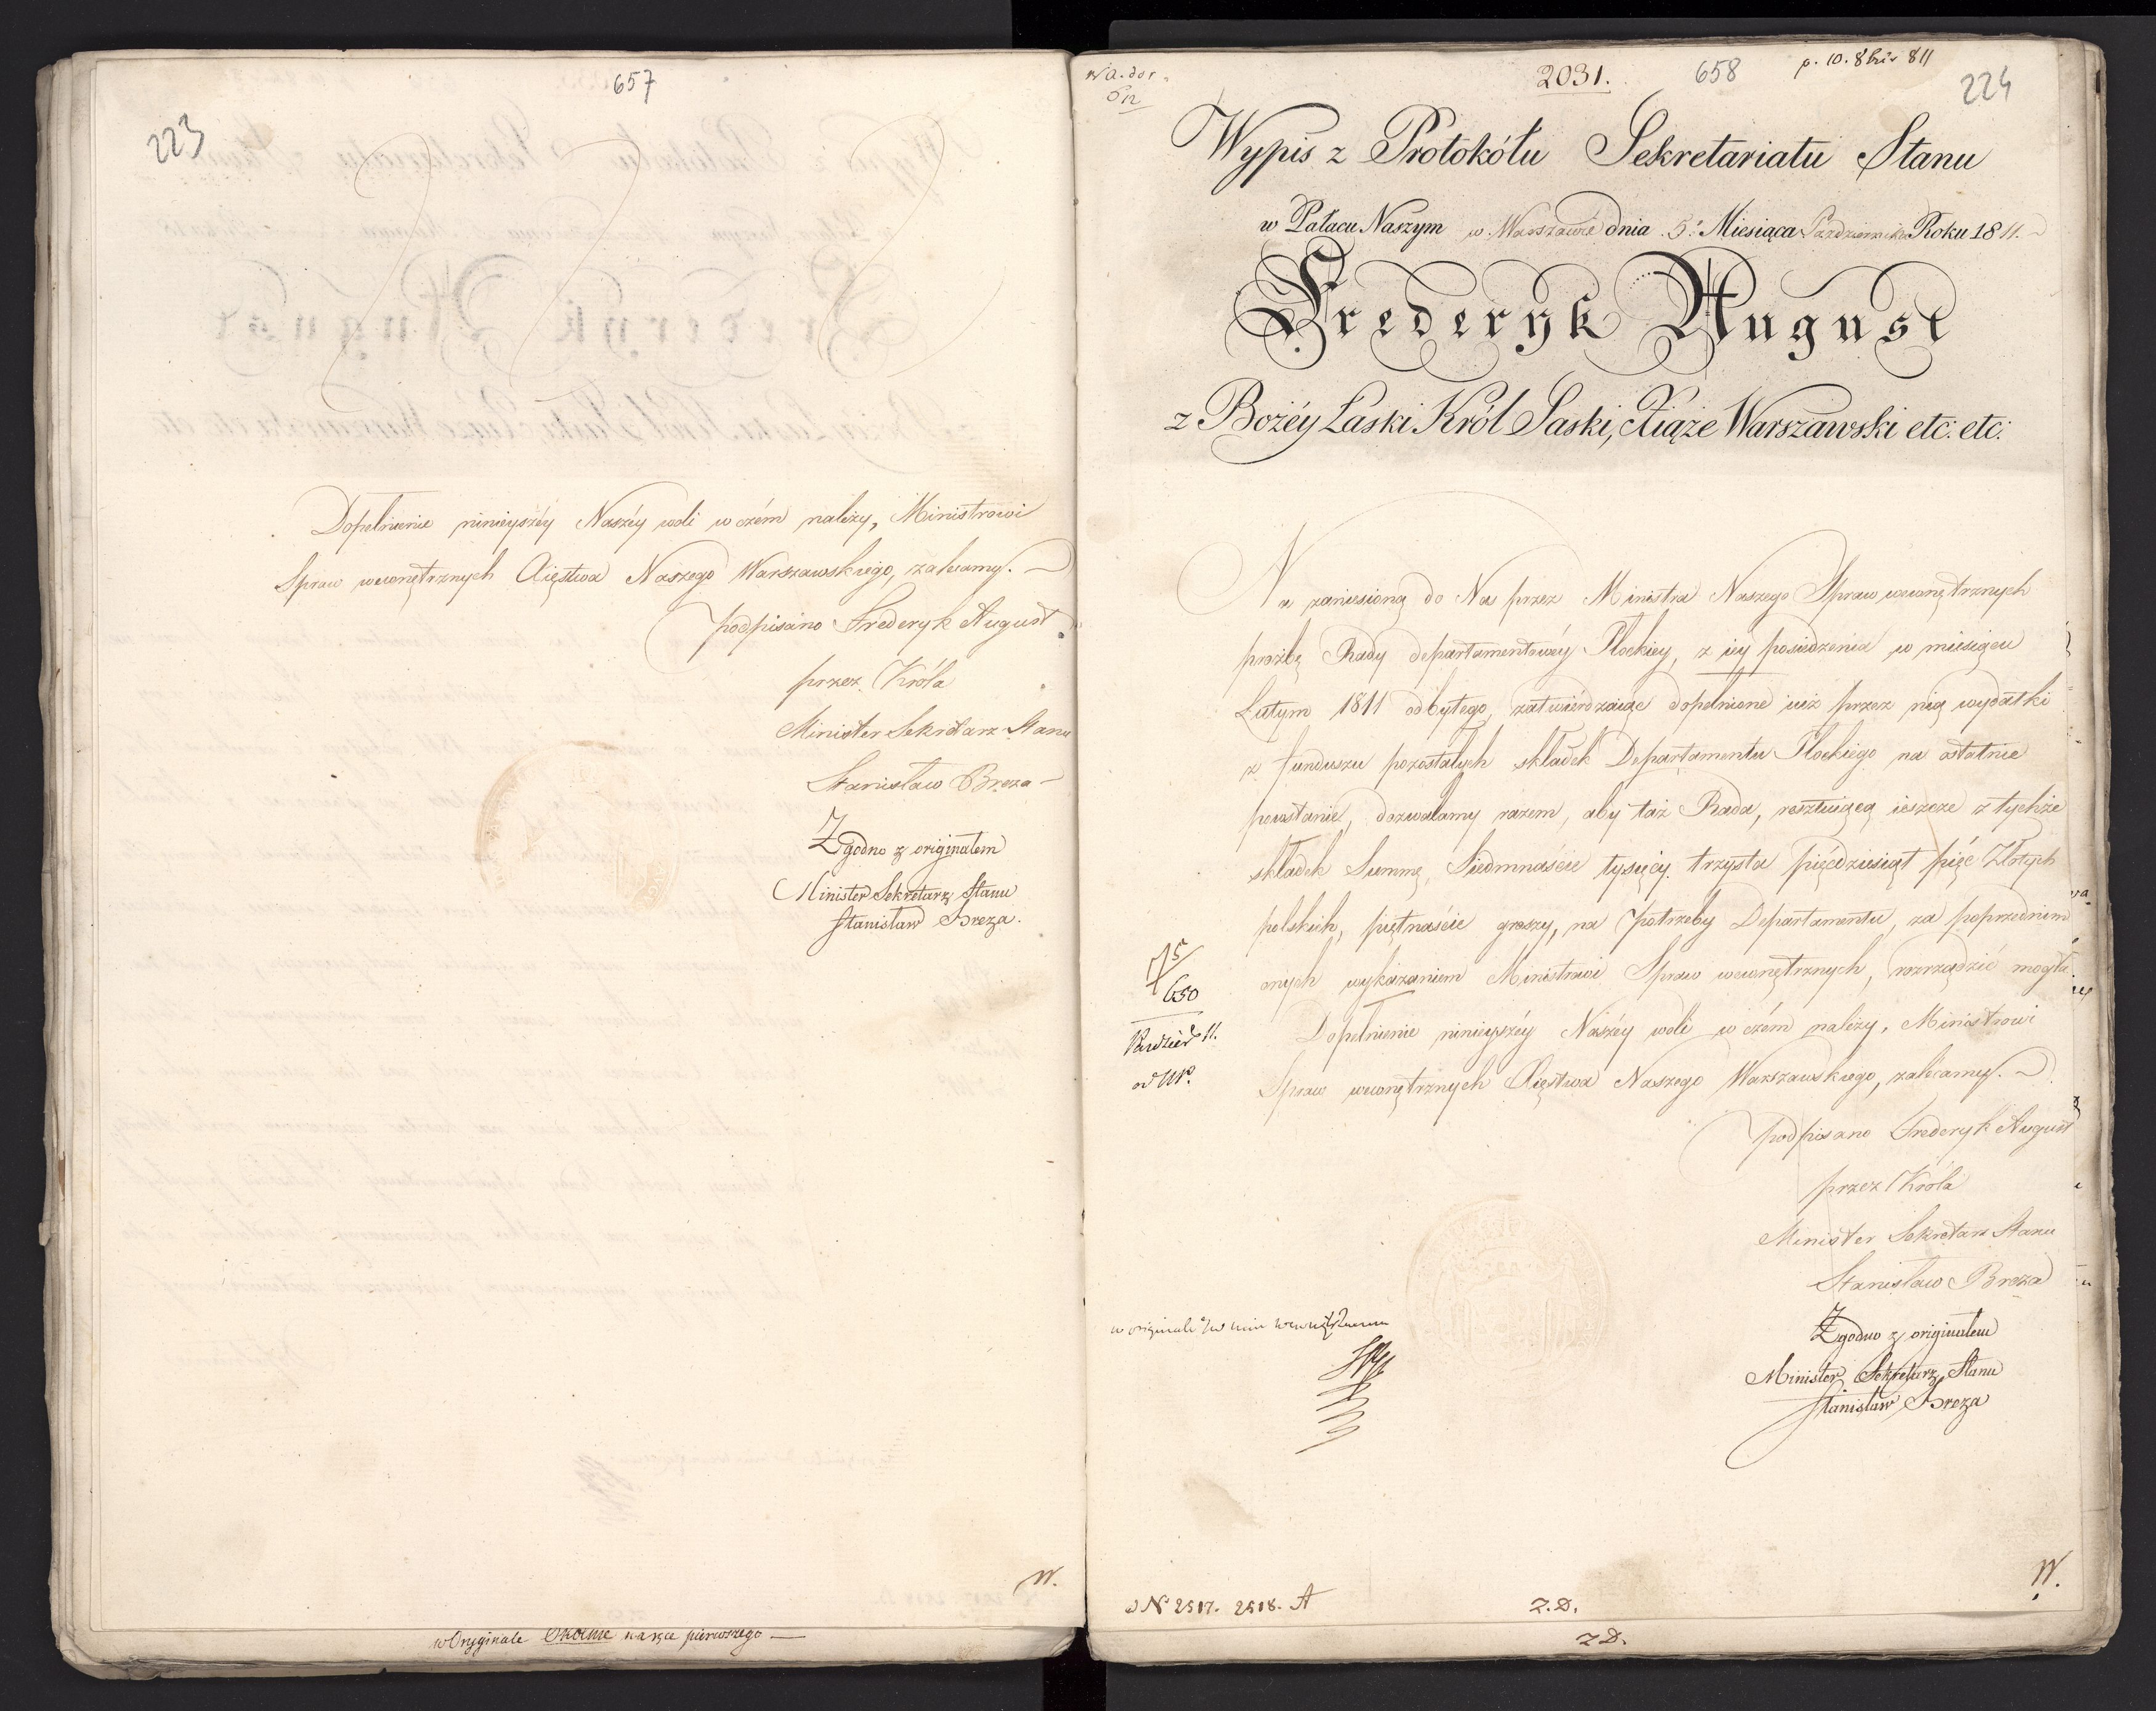 657
223
Dopełnienie ninieyszéy Naszéy woli w czém należy, Ministrowi
Spraw wewnętrznych Xięstwa Naszego Warszawskiego, zalecamy.
podpisano Frederyk August
przez Króla
Minister Sekretarz Stanu
Stanisław Breza
Zgodno z originałem
Minister Sekretarz Stanu
Stanisław Breza.
W.
w Oryginale
2031.
658
224
Wypis z Protokółu Sekretariatu Stanu
w Pałacu Naszym w Warszawie dnia 5. Miesiąca Października Roku 1811.
Frederyk August
z Bożéy Łaski Król Saski, Xiąże Warszawski etc: etc:
Na zaniesioną do Nas przez Ministra Naszego Spraw wewnętrznych
prozbę Rady departamentowéy Płockiey, z iey posiedzenia w miesiącu
Lutym 1811 odbytego, zatwiérdzaiąc dopełnione iuż przez nią wydatki
z funduszu pozostałych składek Departamentu Płockiego na ostatnie
powstanie, dozwalamy razem, aby taż Rada, resztuiącą ieszcze z tychże
składek Summę, Siedmnaście tysięcy trzysta pięćdziesiąt pięć Złotych
polskich, piętnaście groszy, na potrzeby Departamentu, za poprzedniem
onych wykazaniem Ministrowi Spraw wewnętrznych, rozrządzić mogła.
650
Dopełnienie ninieyszéy Naszéy woli w czém należy, Ministrowi
Spraw wewnętrznych Xięstwa Naszego Warszawskiego, zalecamy.
podpisano Frederyk August
przez Króla
Minister Sekretarz Stanu
Stanisław Breza
Zgodno z originałem
Minister Sekretarz Stanu
Stanisław Breza
W.
N 2517. 2518. A
Z.D.
Z D.